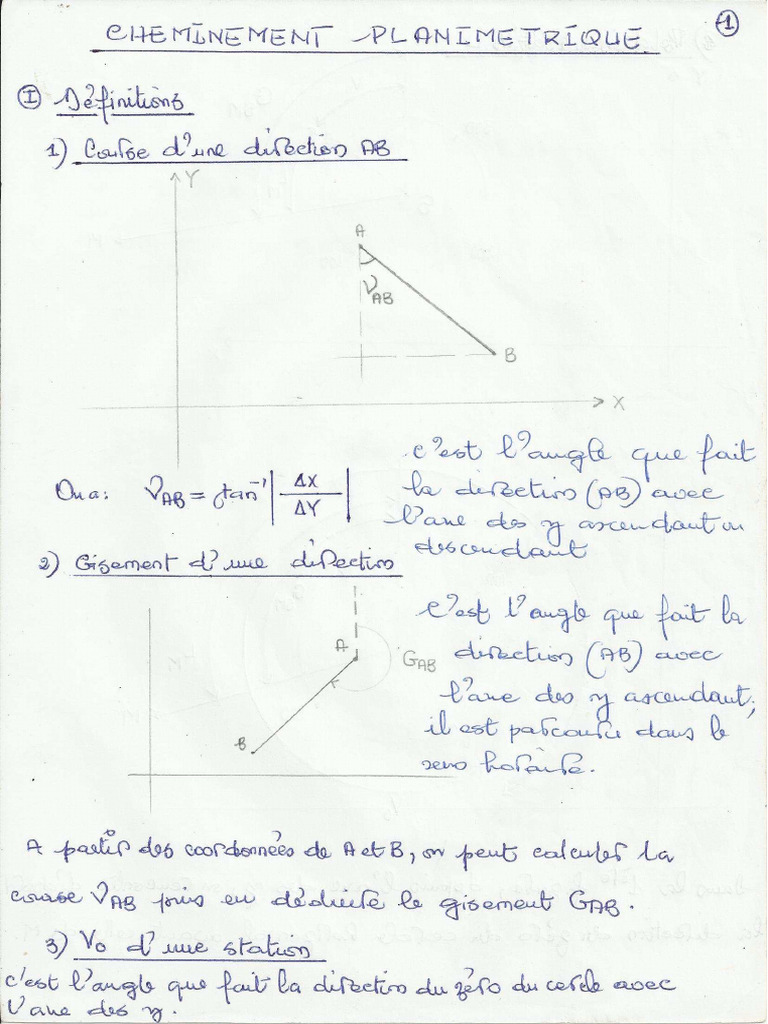 1
CHEMINEMENT PLANIMETRIQUE
I Définitions
1) Course d'une direction AB
Y
A
V_AB
B
X
On a: V_AB = tan⁻¹ |ΔX/ΔY|
c'est l'angle que fait
la direction (AB) avec
l'axe des y ascendant ou
descendant
2) Gisement d'une direction
A
G_AB
B
C'est l'angle que fait la
direction (AB) avec
l'axe des y ascendant;
il est parcouru dans le
sens horaire.
A partir des coordonnées de A et B, on peut calculer la
course V_AB puis en déduire le gisement G_AB.
3) V0 d'une station
C'est l'angle que fait la direction du zéro du cercle avec
l'axe des y.